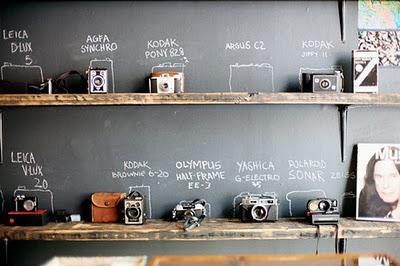 LEICA
D-LUX
5
AGFA
SYNCHRO
KODAK
PONY 828
ARGUS C2
KODAK
JIFFY 11
LEICA
V-LUX
20
KODAK
BROWNIE 6-20
OLYMPUS
HALF-FRAME
EE-3
YASHICA
G-ELECTRO
35
POLAROID
SONAR